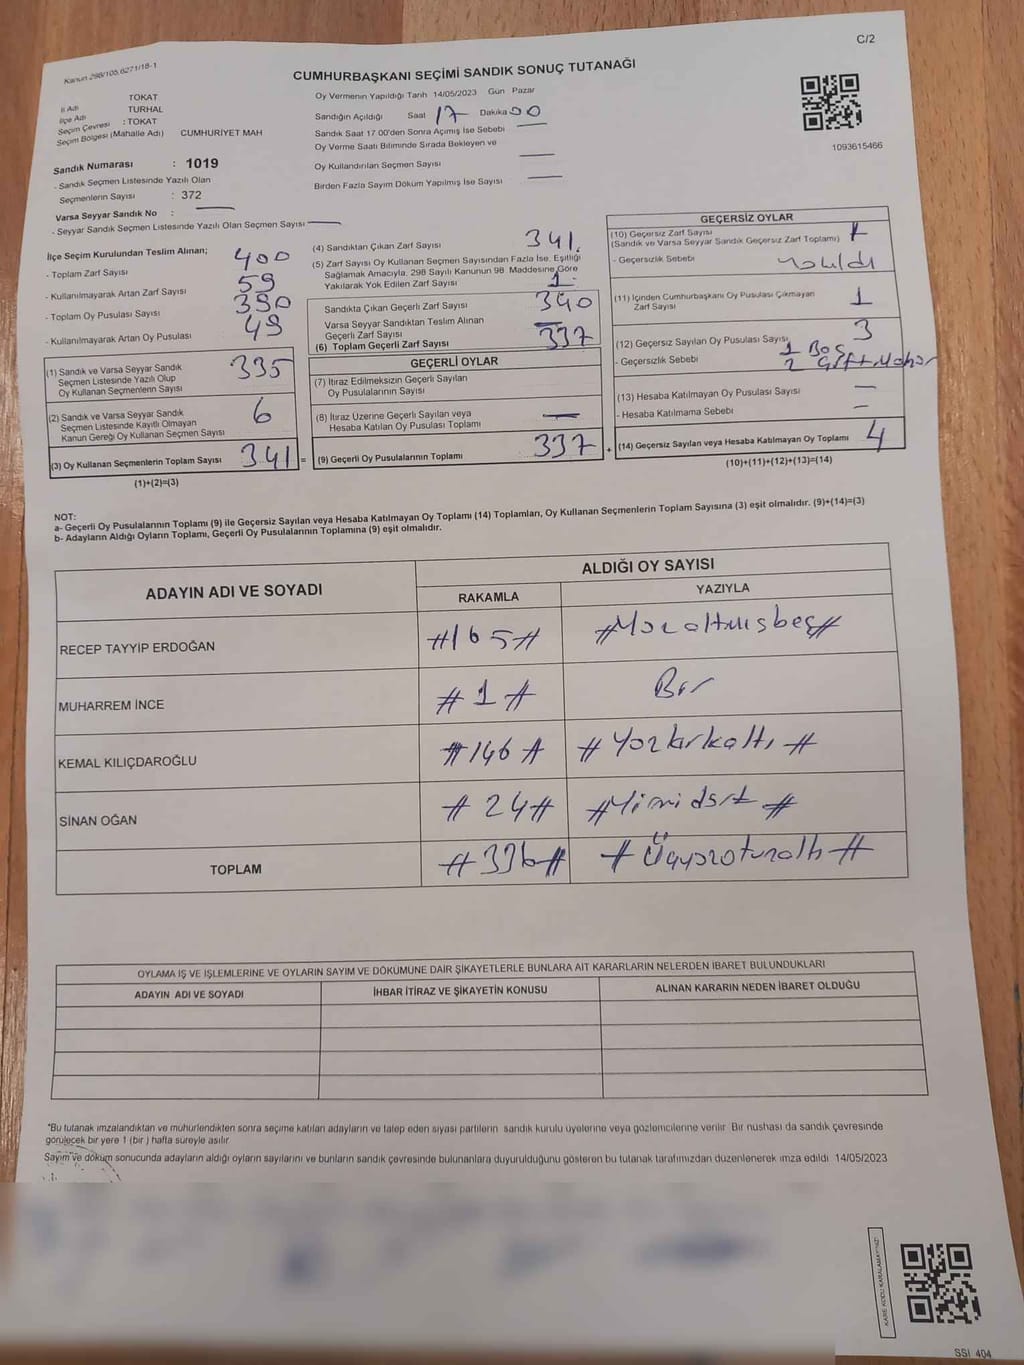 C/2
Kanun 298/105,6271/18-1
CUMHURBAŞKANI SEÇİMİ SANDIK SONUÇ TUTANAĞI
İl Adı TOKAT
İlçe Adı TURHAL
Seçim Çevresi : TOKAT
Seçim Bölgesi (Mahalle Adı) CUMHURİYET MAH
Sandık Numarası : 1019
- Sandık Seçmen Listesinde Yazılı Olan
Seçmenlerin Sayısı : 372
Varsa Seyyar Sandık No :
- Seyyar Sandık Seçmen Listesinde Yazılı Olan Seçmen Sayısı
Oy Vermenin Yapıldığı Tarih 14/05/2023 Gün Pazar
Sandığın Açıldığı Saat 17 Dakika 00
Sandık Saat 17 00'den Sonra Açımış İse Sebebi
Oy Verme Saati Bitiminde Sırada Bekleyen ve
Oy Kullandırılan Seçmen Sayısı
Birden Fazla Sayım Döküm Yapılmış İse Sayısı
1093615466
İlçe Seçim Kurulundan Teslim Alınan;
- Toplam Zarf Sayısı 400
- Kullanılmayarak Artan Zarf Sayısı 59
- Toplam Oy Pusulası Sayısı 390
- Kullanılmayarak Artan Oy Pusulası 49
(1) Sandık ve Varsa Seyyar Sandık
Seçmen Listesinde Yazılı Olup
Oy Kullanan Seçmenlerin Sayısı 335
(2) Sandık ve Varsa Seyyar Sandık
Seçmen Listesinde Kayıtlı Olmayan
Kanun Gereği Oy Kullanan Seçmen Sayısı 6
(3) Oy Kullanan Seçmenlerin Toplam Sayısı 341 =
(1)+(2)=(3)
(4) Sandıktan Çıkan Zarf Sayısı 341.
(5) Zarf Sayısı Oy Kullanan Seçmen Sayısından Fazla İse, Eşitliği
Sağlamak Amacıyla, 298 Sayılı Kanunun 98 Maddesine Göre
Yakılarak Yok Edilen Zarf Sayısı 1.
Sandıkta Çıkan Geçerli Zarf Sayısı 340
Varsa Seyyar Sandıktan Teslim Alınan
Geçerli Zarf Sayısı
(6) Toplam Geçerli Zarf Sayısı 337
GEÇERLİ OYLAR
(7) İtiraz Edilmeksizin Geçerli Sayılan
Oy Pusulalarının Sayısı
(8) İtiraz Üzerine Geçerli Sayılan veya
Hesaba Katılan Oy Pusulası Toplamı
(9) Geçerli Oy Pusulalarının Toplamı 337 +
GEÇERSİZ OYLAR
(10) Geçersiz Zarf Sayısı
(Sandık ve Varsa Seyyar Sandık Geçersiz Zarf Toplamı)
- Geçersizlik Sebebi
(11) İçinden Cumhurbaşkanı Oy Pusulası Çıkmayan
Zarf Sayısı 1
(12) Geçersiz Sayılan Oy Pusulası Sayısı 3
- Geçersizlik Sebebi 1 Boş
2 Çift Mühür
(13) Hesaba Katılmayan Oy Pusulası Sayısı —
- Hesaba Katılmama Sebebi —
(14) Geçersiz Sayılan veya Hesaba Katılmayan Oy Toplamı 4
(10)+(11)+(12)+(13)=(14)
NOT:
a- Geçerli Oy Pusulalarının Toplamı (9) ile Geçersiz Sayılan veya Hesaba Katılmayan Oy Toplamı (14) Toplamları, Oy Kullanan Seçmenlerin Toplam Sayısına (3) eşit olmalıdır. (9)+(14)=(3)
b- Adayların Aldığı Oyların Toplamı, Geçerli Oy Pusulalarının Toplamına (9) eşit olmalıdır.
ADAYIN ADI VE SOYADI
ALDIĞI OY SAYISI
RAKAMLA YAZIYLA
RECEP TAYYİP ERDOĞAN #165# #Yüzaltmışbeş#
MUHARREM İNCE #1# Bir
KEMAL KILIÇDAROĞLU #146# #Yüzkırkaltı#
SİNAN OĞAN #24# #Yirmidört#
TOPLAM #336# #Üçyüzotuzaltı#
OYLAMA İŞ VE İŞLEMLERİNE VE OYLARIN SAYIM VE DÖKÜMÜNE DAİR ŞİKAYETLERLE BUNLARA AİT KARARLARIN NELERDEN İBARET BULUNDUKLARI
ADAYIN ADI VE SOYADI İHBAR İTİRAZ VE ŞİKAYETİN KONUSU ALINAN KARARIN NEDEN İBARET OLDUĞU
*Bu tutanak imzalandıktan ve mühürlendikten sonra seçime katılan adayların ve talep eden siyasi partilerin sandık kurulu üyelerine veya gözlemcilerine verilir Bir nushası da sandık çevresinde
görülecek bir yere 1 (bir) hafta süreyle asılır
Sayım ve döküm sonucunda adayların aldığı oyların sayılarını ve bunların sandık çevresinde bulunanlara duyurulduğunu gösteren bu tutanak tarafımızdan düzenlenerek imza edildi 14/05/2023
KARE KODU KARALAMAYINIZ
SSI 404